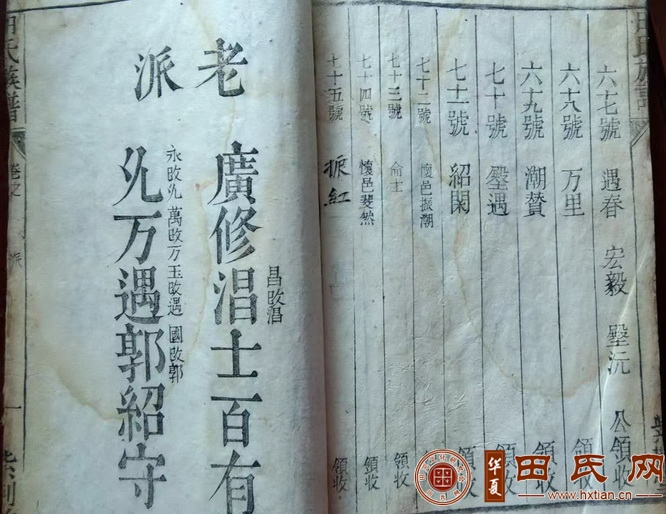 六十七號 遇春 宏毅 沅 公領收
六十八號 万里 領收
六十九號 潮贊 領收
七十號 遇 領收
七十一號 紹閑 領收
七十二號 懷邑振潮 領收
七十三號 命主 領收
七十四號 懷邑斐然 領收
七十五號 振紅 領收
老派
廣修淐士百有
昌改淐
万遇郭紹守
永改 萬改万 玉改遇 國改郭
田氏族譜 卷之 派 一 紫荆
华夏 田氏网
www.hxtian.cn